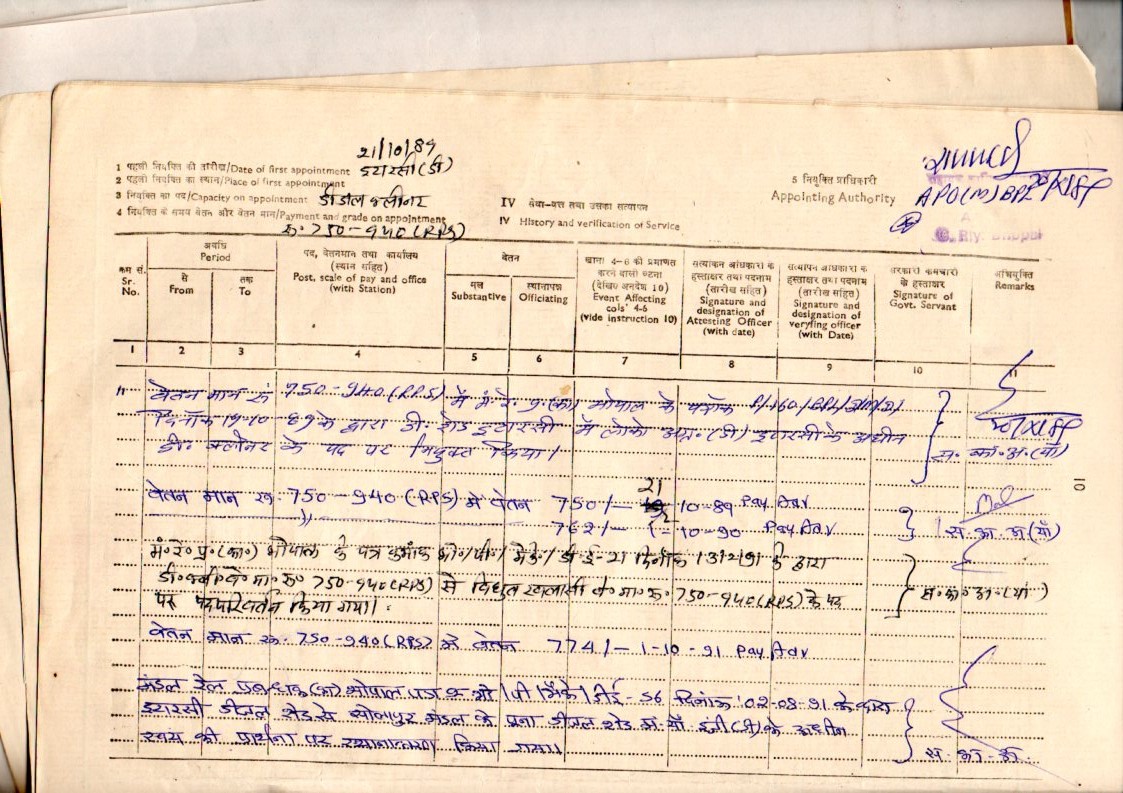 21/10/89
1 पहली नियुक्ति की तारीख/Date of first appointment इटारसी (डी)
2 पहली नियुक्ति का स्थान/Place of first appointment
3 नियुक्ति का पद/Capacity on appointment डीजल क्लीनर
4 नियुक्ति के समय वेतन और वेतन मान/Payment and grade on appointment
रु. 750-940 (RPS)
IV सेवा-वृत्त तथा उसका सत्यापन
IV History and verification of Service
5 नियुक्ति प्राधिकारी
Appointing Authority
APO(M) BPL
C. Rly. Bhopal
क्रम सं. Sr. No.
अवधि Period
से From
तक To
पद, वेतनमान तथा कार्यालय (स्थान सहित) Post, scale of pay and office (with Station)
वेतन
मूल Substantive
स्थानापन्न Officiating
खाना 4-6 को प्रभावित करने वाली घटना (देखिए अनुदेश 10) Event Affecting cols' 4-6 (vide instruction 10)
सत्यापन अधिकारी के हस्ताक्षर तथा पदनाम (तारीख सहित) Signature and designation of Attesting Officer (with date)
सत्यापन अधिकारी के हस्ताक्षर तथा पदनाम (तारीख सहित) Signature and designation of veryfing officer (with Date)
सरकारी कर्मचारी के हस्ताक्षर Signature of Govt. Servant
अभियुक्ति Remarks
1 2 3 4 5 6 7 8 9 10 11
वेतन मान रु 750-940 (RPS) में मं. रे. प्र. (का) भोपाल के पत्रांक
दिनांक 19-10-89 के द्वारा डी. शेड इटारसी में लोको अग्र. (डी) इटारसी के अधीन
डी. क्लीनर के पद पर नियुक्त किया। स. का. अ. (यां)
21
वेतन मान रु 750-940 (RPS) में वेतन 750/- 10-89 Pay Adv
—"— 762/- 1-10-90 Pay Adv स. का. अ. (यां)
मं. रे. प्र. (का.) भोपाल के पत्र क्रमांक दिनांक के द्वारा
750-940 (RPS) से विद्युत खलासी वे. मा. रु. 750-940 (RPS) के पद स. का. अ. (यां)
पर पदपरिवर्तन किया गया।
वेतन मान रु. 750-940 (RPS) में वेतन 774/- 1-10-91 Pay Adv
मंडल रेल प्रबन्धक (का) भोपाल पत्र क्र दिनांक 02-08-91 के द्वारा
इटारसी डीजल शेड से सोलापुर मंडल के पूना डीजल शेड के अधीन
स्वयं की प्रार्थना पर स्थानान्तरण किया गया। स. का. अ.
10